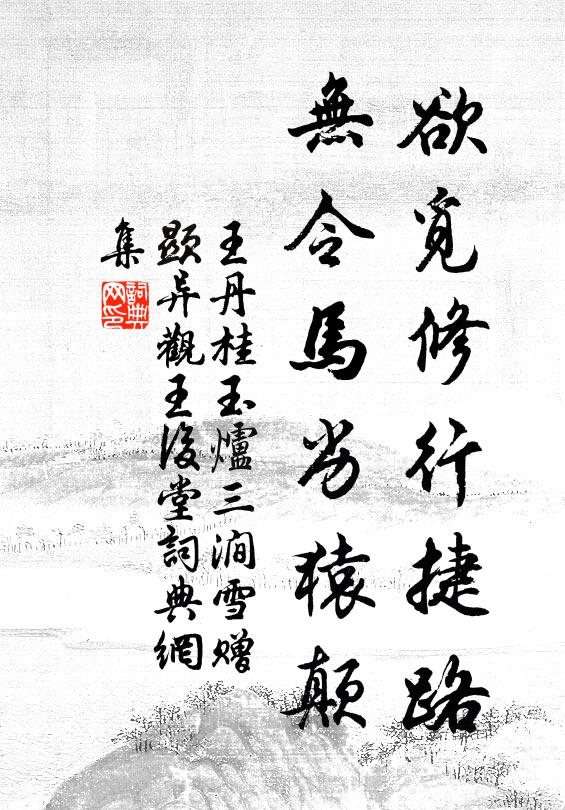 欲覓修行捷路
無令馬劣猿顛
王丹桂玉爐三澗雪贈
顯异觀王後堂詞典網
集
詞典
网印